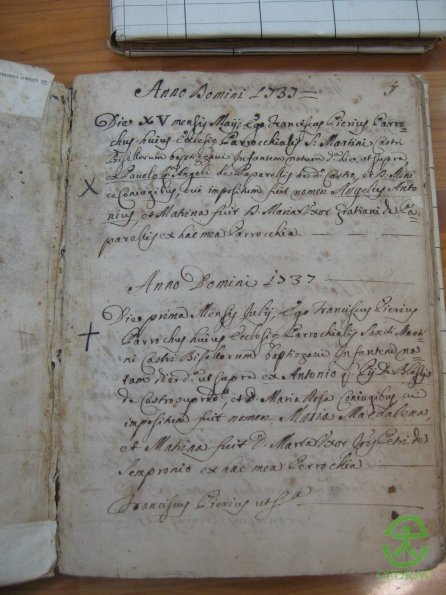 Anno Domini 1737
Die XV mensis Maij Ego Franciscus Pierius Parro=
chus huius Ecclesiæ Parrochialis S. Martini
baptizzavi Infantem natum die ut supra
ex Paulo Angeli de Paparellis de Castro, et D.
Coniugibus cui impositum fuit nomen Angelus Anto=
nius, et Matrina fuit D. Maria Uxor Gratiani de Pa=
parellis ex hac mea Parrochia
Anno Domini 1737
Die prima Mensis Julij Ego Franciscus Pierius
Parrochus huius Ecclesiæ Parrochialis Sancti Marti=
ni Castri Bisellorum baptizzavi Infantem na=
tam die ut supra ex Antonio q.
de Castro et D. Maria Coniugibus cui
impositum fuit nomen Maria Magdalena,
et Matrina fuit D. Maria Uxor Petri de
Sempronio ex hac mea Parrochia
Franciscus Pierius ut sa